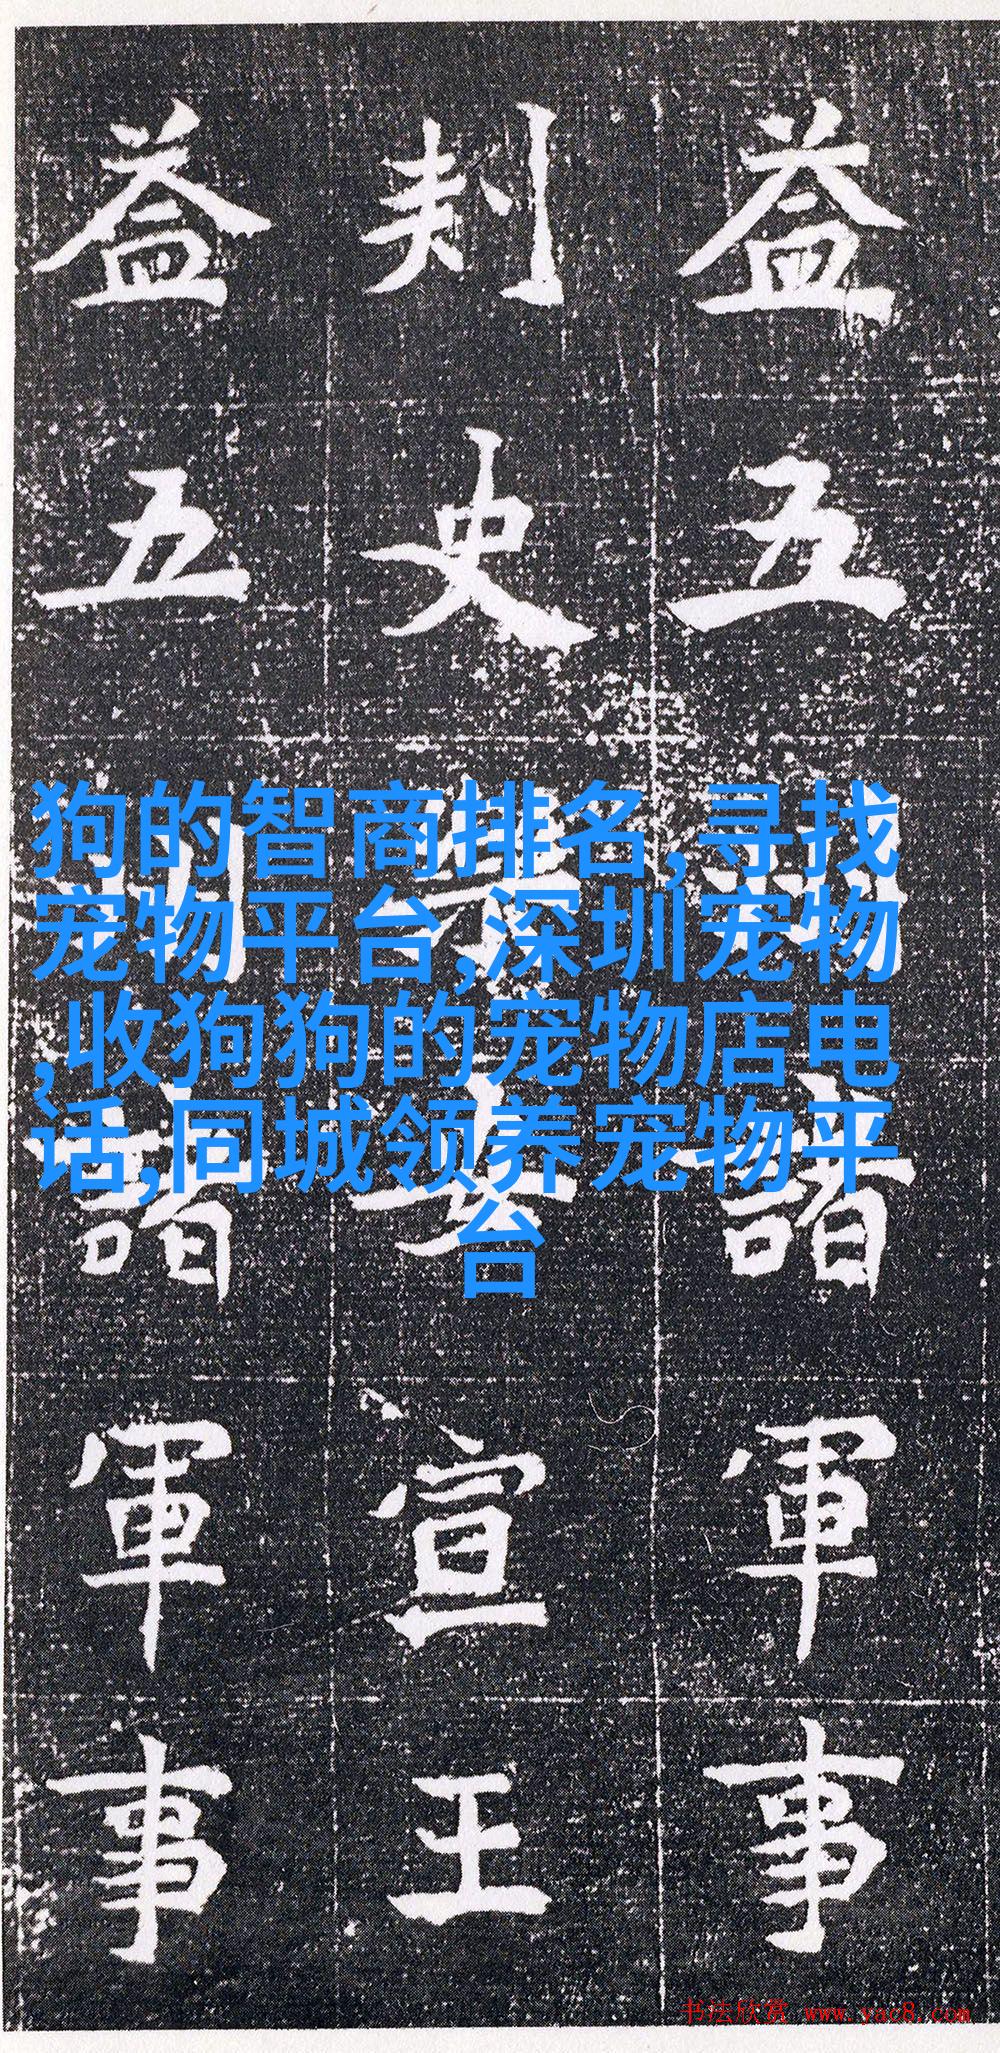 益五州諸軍事
刺史宣王
益五州諸軍事
狗的智商排名,寻找
宠物平台,深圳宠物
,收狗狗的宠物店电
话,同城领养宠物平
台
书法欣赏 www.yac8.com